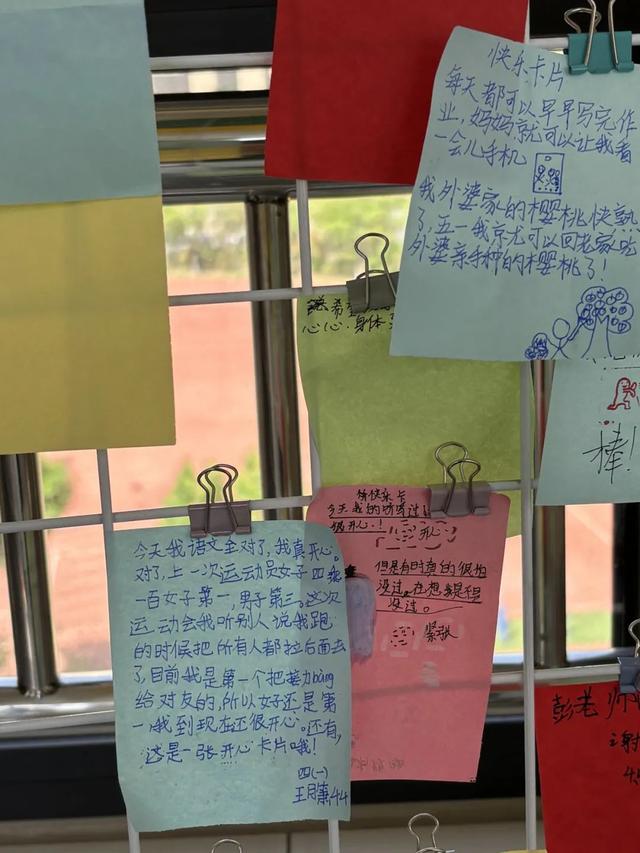 快乐卡片
每天都可以早早写完作
业,妈妈就可以让我看
一会儿手机
我外婆家的樱桃快熟
了,五一我就可以回老家吃
外婆亲手种的樱桃了!
希
心心.身体
棒!
快乐卡
今天我的
很开心.!
开心
但是有时真的很怕
没过。在想
没过。
紧张
今天我语文全对了,我真开心。
对了,上一次运动员女子四乘
一百女子第一,男子第三。这次
运动会我听别人说我跑
的时候把所有人都拉后面去
了,目前我是第一个把接力bàng
给对友的,所以女子还是第
一我到现在还很开心。还有,
这是一张开心卡片哦!
四(一)
44
彭老师
谢